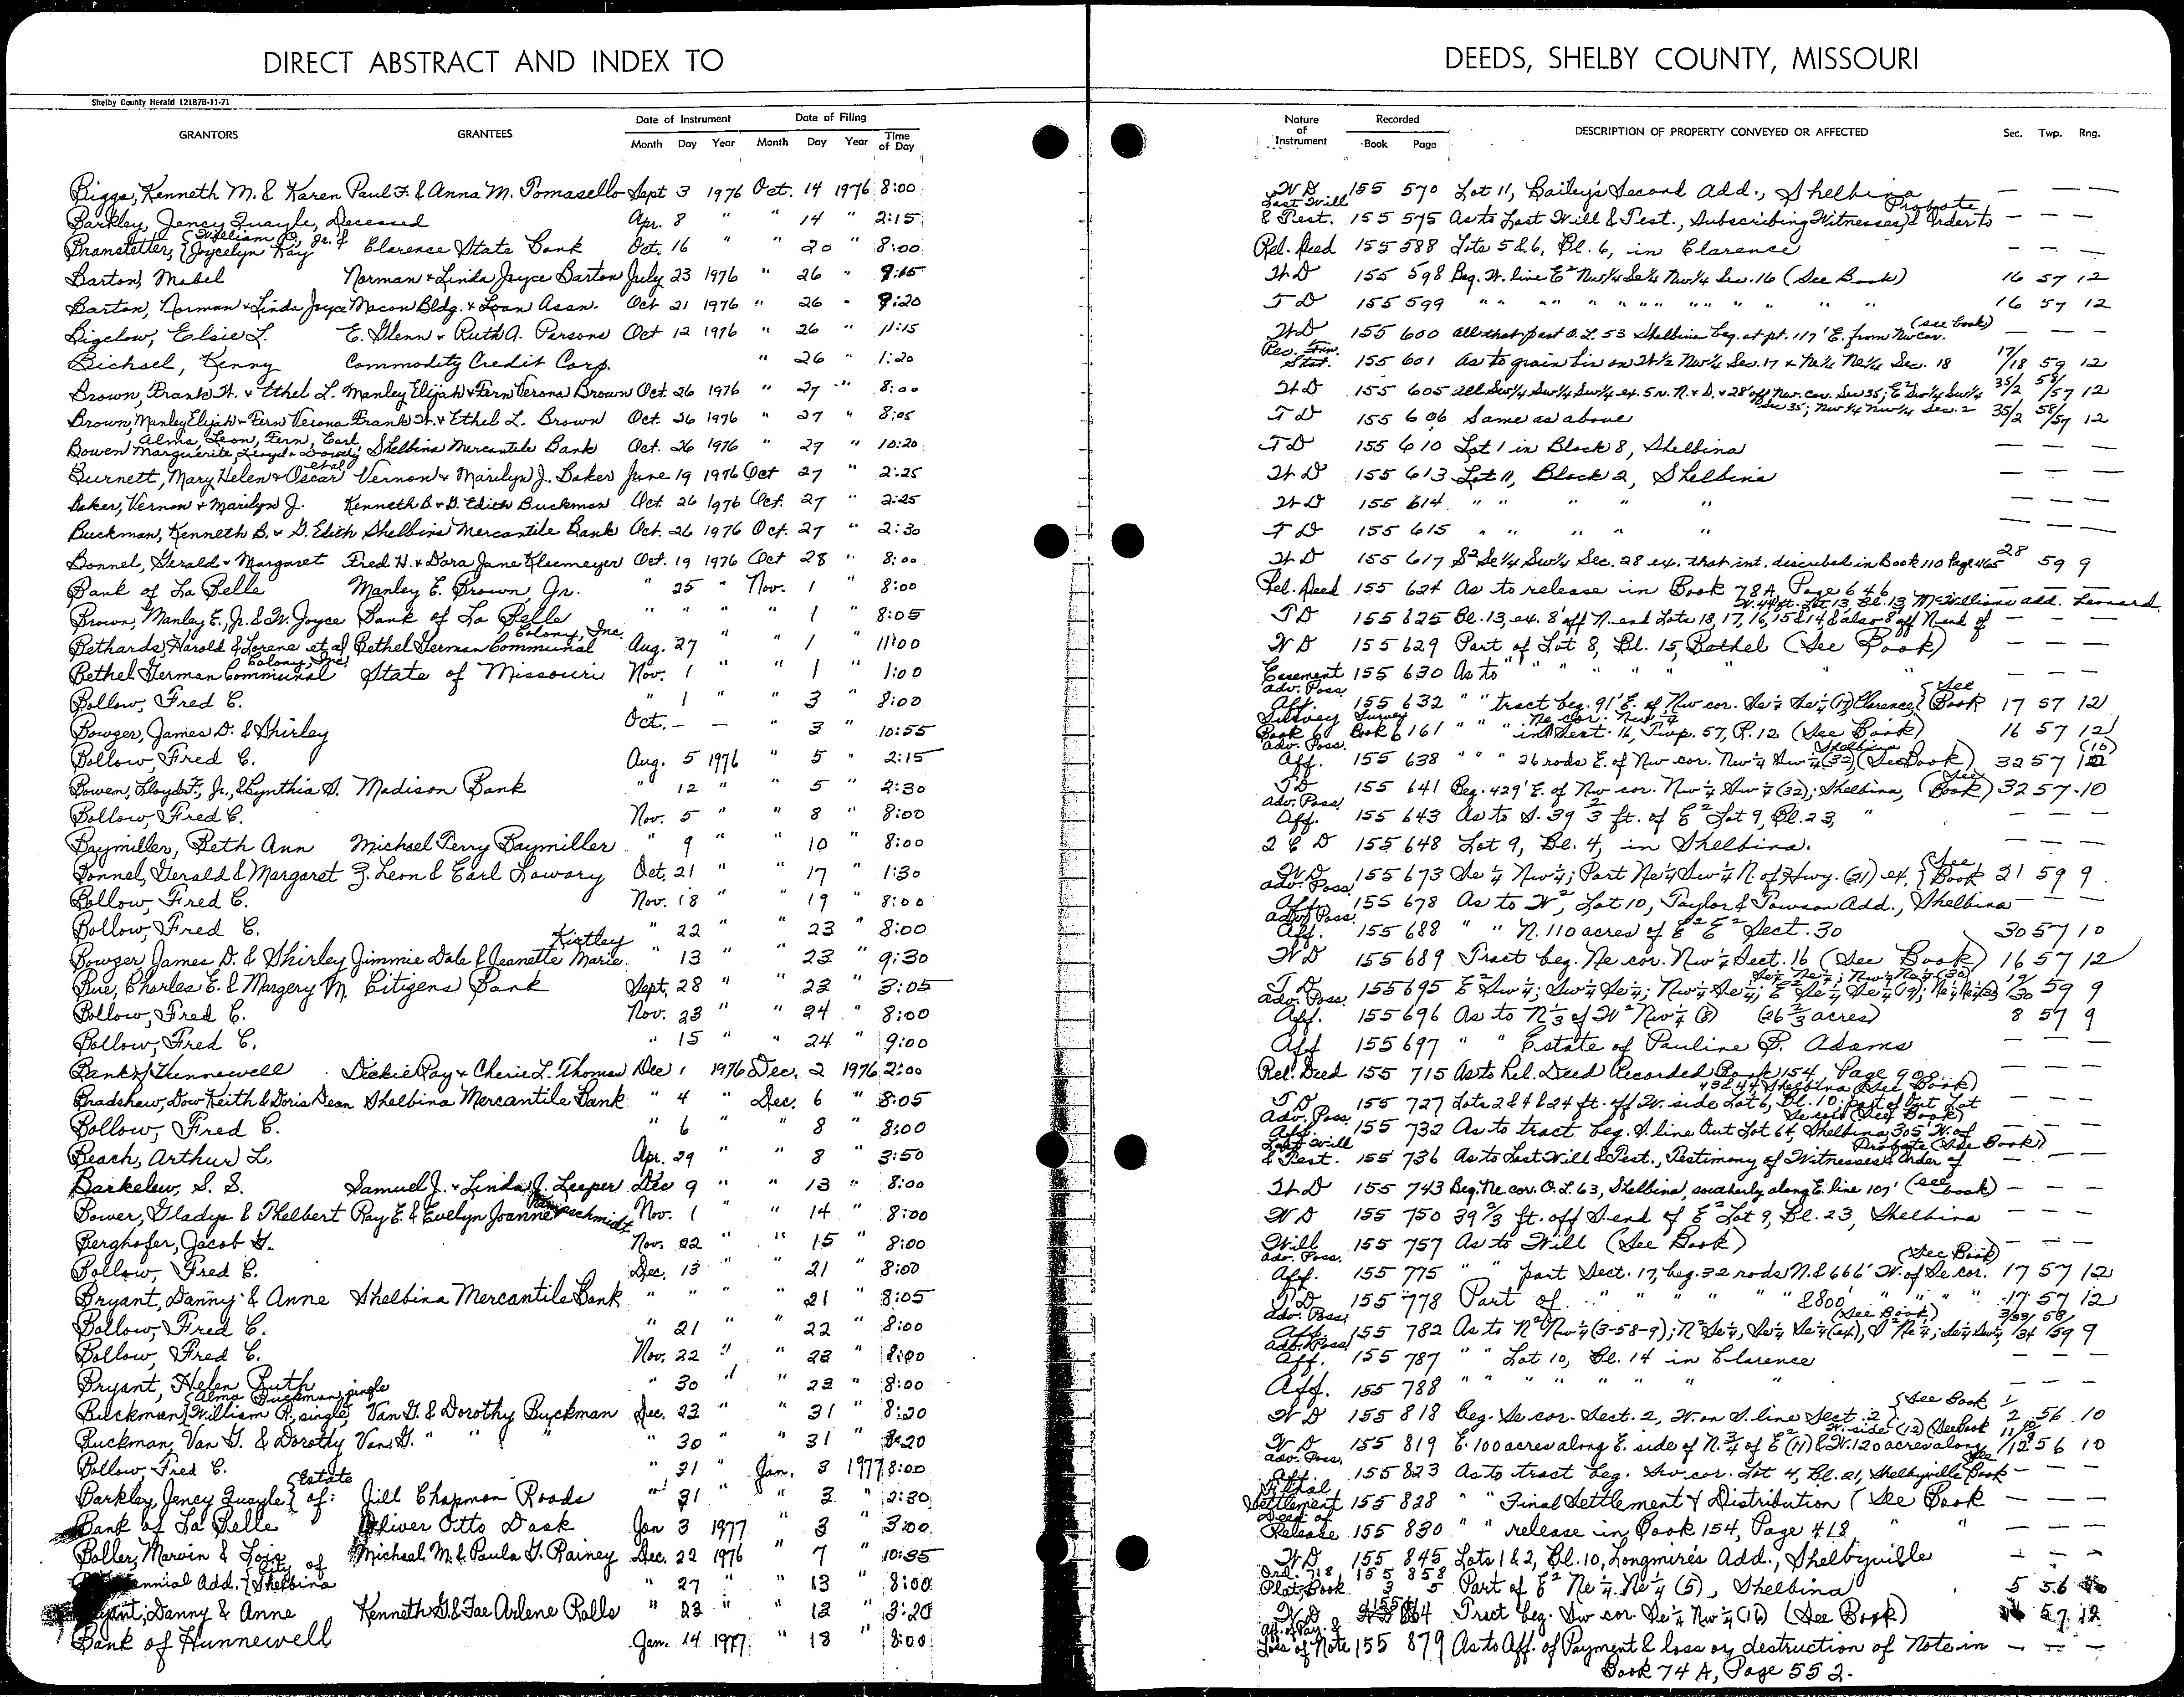 DIRECT ABSTRACT AND INDEX TO DEEDS, SHELBY COUNTY, MISSOURI
Shelby County Herald 12187B-11-71
Date of Instrument Date of Filing Nature of Instrument Recorded
GRANTORS GRANTEES Month Day Year Month Day Year Time of Day Book Page DESCRIPTION OF PROPERTY CONVEYED OR AFFECTED Sec. Twp. Rng.
Biggs, Kenneth M. & Karen Paul F. & Anna M. Tomasello Sept 3 1976 Oct. 14 1976 8:00 WD 155 570 Lot 11, Bailey's Second Add., Shelbina — — —
Barkley, Jency Quayle, Deceased Apr. 8 " " 14 " 2:15 Last Will & Test. 155 575 As to Last Will & Test., Subscribing Witnesses, & Order to Probate — — —
Branstetter, {William O., Jr. & Jocelyn Kay Clarence State Bank Oct. 16 " " 20 " 8:00 Rel. Deed 155 588 Lots 5 & 6, Bl. 6, in Clarence — — —
Barton, Mabel Norman & Linda Joyce Barton July 23 1976 " 26 " 9:15 WD 155 598 Beg. W. line E² Nw1/4 Se1/4 Nw1/4 Sec. 16 (See Book) 16 57 12
Barton, Norman & Linda Joyce Macon Bldg. & Loan Assn. Oct 21 1976 " 26 " 9:20 TD 155 599 " " " " " " " " " " " " 16 57 12
Bigelow, Elsie L. E. Glenn & Ruth A. Parsons Oct 12 1976 " 26 " 11:15 WD 155 600 All that part O.L. 53 Shelbina beg. at pt. 117' E. from Nw Cor. (see book) — — —
Bichsel, Kenny Commodity Credit Corp. " 26 " 1:20 Fin. Stat. 155 601 As to grain bin on W1/2 Nw1/4 Sec. 17 & Ne1/4 Ne1/4 Sec. 18 17/18 59 12
Brown, Frank W. & Ethel L. Manley Elijah & Fern Verona Brown Oct. 26 1976 " 27 " 8:00 WD 155 605 All Sw1/4 Sw1/4 Sw1/4 ex. 5 r. N. & S. & 28' off Nw. cor. Sec 35; E² Sw1/4 Sw1/4 Sec 35; Nw1/4 Nw1/4 Sec. 2 35/2 58/57 12
Brown, Manley Elijah & Fern Verona Frank W. & Ethel L. Brown Oct. 26 1976 " 27 " 8:05 TD 155 606 Same as above 35/2 58/57 12
Bowen Alma, Leon, Fern, Earl, Marguerite, Lloyd & Dowdy Shelbina Mercantile Bank Oct. 26 1976 " 27 10:20 TD 155 610 Lot 1 in Block 8, Shelbina — — —
Burnett, Mary Helen & Oscar et al Vernon & Marilyn J. Baker June 19 1976 Oct 27 " 2:25 WD 155 613 Lot 11, Block 2, Shelbina — — —
Baker, Vernon & Marilyn J. Kenneth B. & G. Edith Buckman Oct. 26 1976 Oct. 27 " 2:25 WD 155 614 " " " " " — — —
Buckman, Kenneth B. & G. Edith Shelbina Mercantile Bank Oct. 26 1976 Oct. 27 " 2:30 TD 155 615 " " " " " — — —
Bonnel, Gerald & Margaret Fred H. & Dora Jane Kleemeyer Oct. 19 1976 Oct 28 " 8:00 WD 155 617 S² Se1/4 Sw1/4 Sec. 28 ex. that int. discribed in Book 110 Page 465 28 59 9
Bank of La Belle Manley E. Brown, Jr. " 25 " Nov. 1 " 8:00 Rel. Deed 155 624 As to release in Book 78A, Page 646 — — —
Brown, Manley E., Jr. & W. Joyce Bank of La Belle " " " " 1 " 8:05 TD 155 625 Bl. 13, ex. 8' off N. end Lots 18, 17, 16, 15 & 14, & also 8' off N. end of W. 44 ft. Lot 13, Bl. 13 McWilliams Add. Leonard — — —
Bethards, Harold & Lorene et al Bethel German Communal Colony, Inc. Aug. 27 " " 1 " 11:00 WD 155 629 Part of Lot 8, Bl. 15, Bethel (See Book) — — —
Bethel German Communal Colony, Inc. State of Missouri Nov. 1 " " 1 " 1:00 Easement 155 630 As to " " " " " " — — —
Bollow, Fred C. " 1 " " 3 " 8:00 Adv. Poss. Aff. 155 632 " " tract beg. 91' E. of Nw cor. Se 1/4 Se 1/4 (17) Clarence {See Book 17 57 12
Bowzer, James D. & Shirley Oct. — — " 3 " 10:55 Survey Book 6 Survey Book 6 161 " " " Ne. cor. Nw 1/4 in Sect. 16, Twp. 57, R. 12 (See Book) 16 57 12
Bollow, Fred C. Aug. 5 1976 " 5 " 2:15 Adv. Poss. Aff. 155 638 " " " 26 rods E. of Nw cor. Nw 1/4 Sw 1/4 (32) Shelbina (See Book) 32 57 (10)
Bowen, Lloyd F., Jr., & Cynthia S. Madison Bank " 12 " " 5 " 2:30 TD 155 641 Beg. 429' E. of Nw cor. Nw 1/4 Sw 1/4 (32); Shelbina, (See Book) 32 57 10
Bollow, Fred C. Nov. 5 " " 8 " 8:00 Adv. Poss. Aff. 155 643 As to S. 39 2/3 ft. of E² Lot 9, Bl. 23, " — — —
Baymiller, Beth Ann Michael Terry Baymiller " 9 " " 10 " 8:00 Q C D 155 648 Lot 9, Bl. 4, in Shelbina. — — —
Bonnel, Gerald & Margaret Z. Leon & Earl Lowary Oct. 21 " " 17 " 1:30 WD 155 673 Se 1/4 Nw 1/4; Part Ne 1/4 Sw 1/4 N. of Hwy. (21) ex. {See Book 21 59 9
Bollow, Fred C. Nov. 18 " " 19 " 8:00 Adv. Poss. Aff. 155 678 As to W², Lot 10, Taylor & Towson Add., Shelbina — — —
Bollow, Fred C. " 22 " " 23 " 8:00 Adv. Poss. Aff. 155 688 " " N. 110 acres of E² E² Sect. 30 30 57 10
Bowzer James D. & Shirley Jimmie Dale & Jeanette Marie Kirtley " 13 " " 23 " 9:30 WD 155 689 Tract beg. Ne cor. Nw 1/4 Sect. 16 (See Book) 16 57 12
Bue, Charles E. & Margery M. Citizens Bank Sept. 28 " " 23 " 3:05 TD 155 695 E² Sw 1/4; Sw 1/4 Se 1/4; Nw 1/4 Se 1/4; E² Se 1/4 Se 1/4 (19); 19/30 59 9
Bollow, Fred C. Nov. 23 " " 24 " 8:00 Adv. Poss. Aff. 155 696 As to N 1/3 of W² Nw 1/4 (8) (26 2/3 acres) 8 57 9
Bollow, Fred C. " 15 " " 24 " 9:00 Aff 155 697 " " Estate of Pauline B. Adams — — —
Bank of Hunnewell Dickie Ray & Cherie L. Thomas Dec 1 1976 Dec. 2 1976 2:00 Rel. Deed 155 715 As to Rel. Deed Recorded Book 154, Page 908 — — —
Bradshaw, Dow Keith & Doris Dean Shelbina Mercantile Bank " 4 " Dec. 6 " 8:05 TD 155 727 Lots 2 & 4 & 24 ft. off W. side Lot 6, Bl. 10; part of Out Lot 43 & 44 Shelbina (See Book) — — —
Bollow, Fred C. " 6 " " 8 " 8:00 Adv. Poss. Aff. 155 732 As to tract beg. S. line Out Lot 64, Shelbina, 305' W. of Se cor. (See Book) — — —
Beach, Arthur L. Apr. 29 " " 8 " 3:50 Last Will & Test. 155 736 As to Last Will & Test., Testimony of Witnesses & Order of Probate (See Book) — — —
Barkelew, S. S. Samuel J. & Linda J. Leeper Dec 9 " " 13 " 8:00 WD 155 743 Beg. Ne. cor. O.L. 63, Shelbina, southerly along E. line 107' (see book) — — —
Bower, Gladys & Thelbert Ray E. & Evelyn Joanne Nov. 1 " " 14 " 8:00 WD 155 750 39 2/3 ft. off S. end of E² Lot 9, Bl. 23, Shelbina — — —
Berghofer, Jacob G. Nov. 22 " " 15 " 8:00 Will 155 757 As to Will (See Book) — — —
Bollow, Fred C. Dec. 13 " " 21 " 8:00 Adv. Poss. Aff. 155 775 " " part Sect. 17, beg. 32 rods N. & 666' W. of Se cor. (See Book) 17 57 12
Bryant, Danny & Anne Shelbina Mercantile Bank " " " " 21 " 8:05 TD 155 778 Part of " " " " " & 800' " " " " 17 57 12
Bollow, Fred C. " 21 " " 22 " 8:00 Adv. Poss. Aff. 155 782 As to N² Nw 1/4 (3-58-9); N² Se 1/4, Se 1/4 Se 1/4 (34), S² Ne 1/4; Se 1/4 Sw 1/4 (See Book) 3/33/34 58/59 9
Bollow, Fred C. Nov. 22 " " 23 " 8:00 Adv. Poss. Aff. 155 787 " " Lot 10, Bl. 14 in Clarence — — —
Bryant, Helen Ruth " 30 " " 23 " 8:00 Aff. 155 788 " " " " " " " " — — —
Buckman {Alma Buckman, single William R., single} Van G. & Dorothy Buckman Dec. 23 " " 31 " 8:20 WD 155 818 Beg. Se cor. Sect. 2, W. on S. line Sect. 2 {See Book 2 56 10
Buckman, Van G. & Dorothy Van G. " " " " 30 " " 31 " 8:20 WD 155 819 E. 100 acres along E. side of N. 3/4 of E² (11) & W. 120 acres along W. side (12) (See Book 11/12 56 10
Bollow, Fred C. " 31 " Jan. 3 1977 8:00 Adv. Poss. Aff. 155 823 As to tract beg. Sw cor. Lot 4, Bl. 21, Shelbyville See Book — — —
Barkley, Jency Quayle} {Estate of: Jill Chapman Roads " 31 " " 3 " 2:30 Final Settlement 155 828 " " Final Settlement & Distribution (See Book — — —
Bank of La Belle Oliver Otto Dask Jan 3 1977 " 3 " 3:00 Deed of Release 155 830 " " release in Book 154, Page 418 " " — — —
Boller, Marvin & Lois Michael M. & Paula G. Rainey Dec. 22 1976 " 7 " 10:35 WD 155 845 Lots 1 & 2, Bl. 10, Longmire's Add., Shelbyville — — —
ennial Add. {City of Shelbina " 27 " " 13 " 8:00 Ord. 718 155 858 Plat Book 3 5 Part of E² Ne 1/4 Ne 1/4 (5), Shelbina 5 56
Danny & Anne Kenneth G. & Fae Arlene Ralls " 23 " " 13 " 3:20 WD 155 Tract beg. Sw cor. Se 1/4 Nw 1/4 (16) (See Book) 57 12
Bank of Hunnewell Jan. 14 1977 " 18 " 8:00 Aff. of Pay. & Loss of Note 155 879 As to Aff. of Payment & loss or destruction of Note in Book 74A, Page 552. — — —